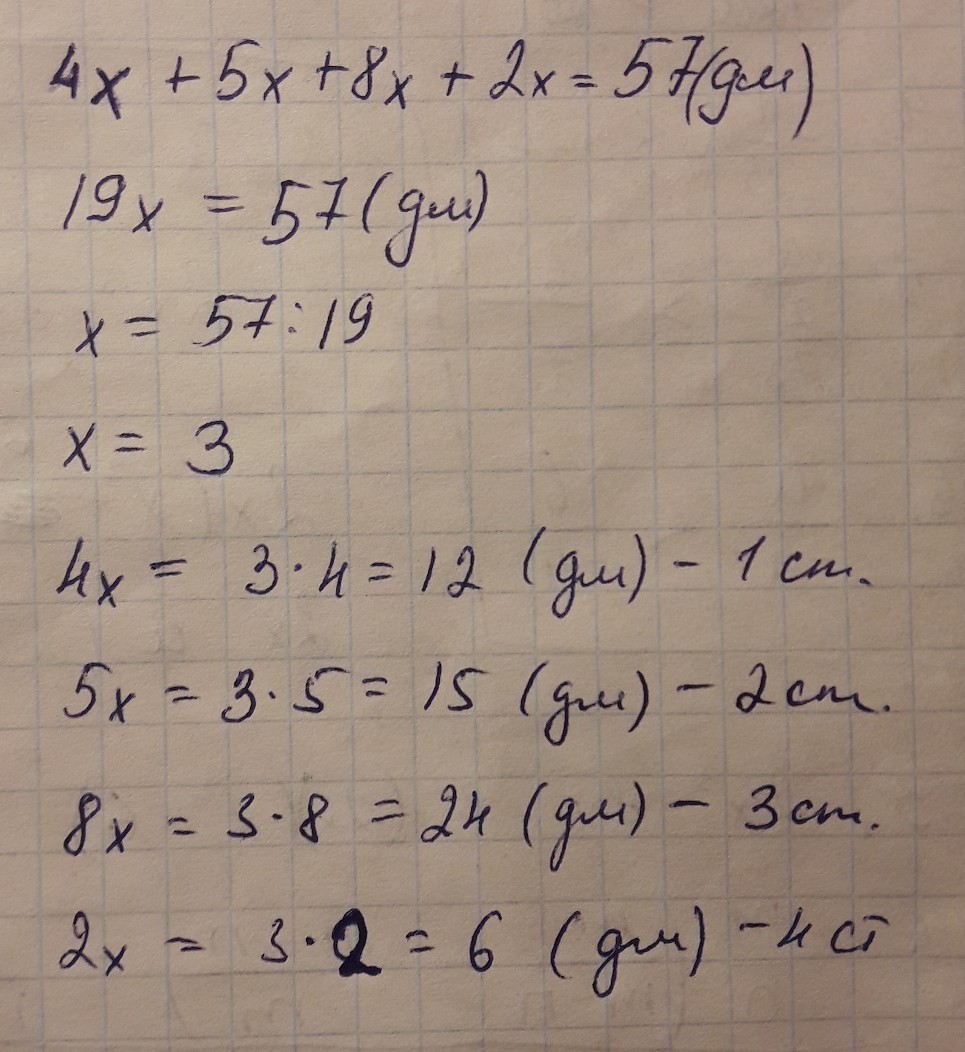 4x + 5x + 8x + 2x = 57(дм)
19x = 57 (дм)
x = 57 : 19
x = 3
4x = 3 · 4 = 12 (дм) - 1 ст.
5x = 3 · 5 = 15 (дм) - 2 ст.
8x = 3 · 8 = 24 (дм) - 3 ст.
2x = 3 · 2 = 6 (дм) - 4 ст